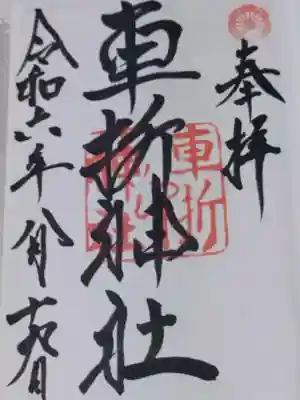 奉拝
車折神社
車折神社
令和六年八月十九日